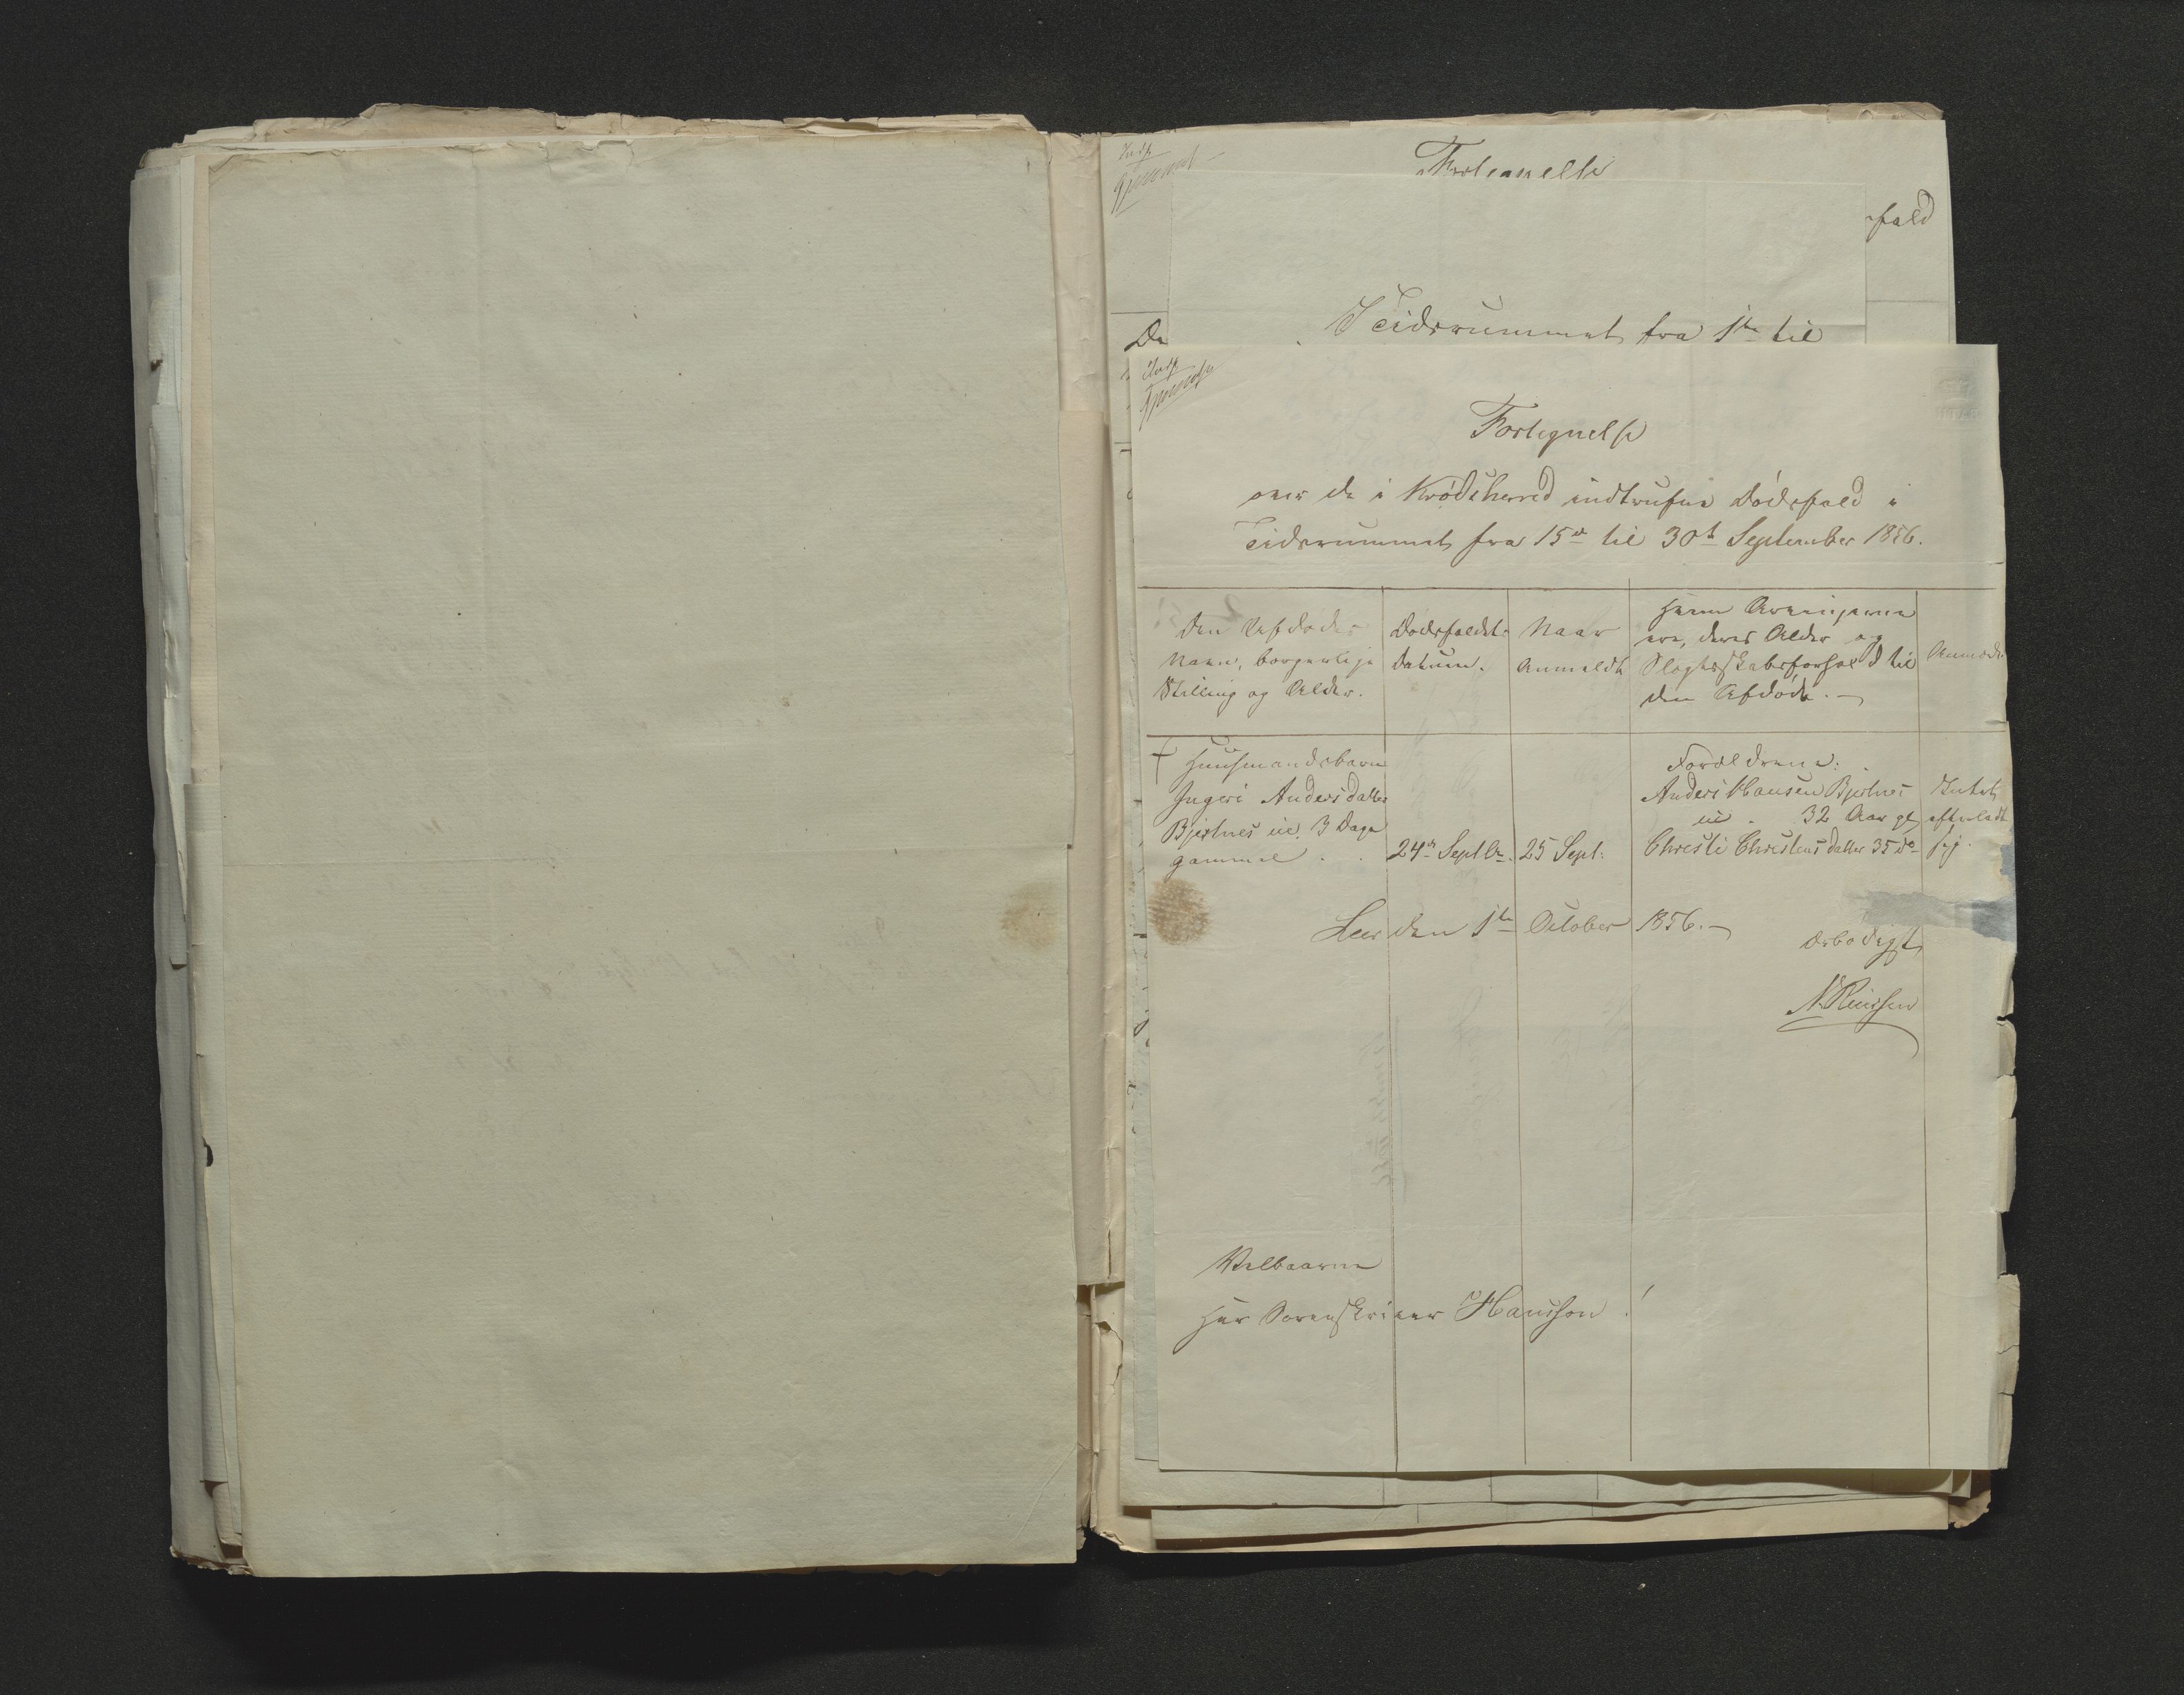 Indf
Fortegnelse
fald
I Tidsrummet fra 1te til
De
Indf
Fortegnelse
over de i Krødsherred indtrufne Dødsfald i
Tidsrummet fra 15de til 30te September 1856.
Den Afdødes
Navn, borgerlige
Stilling og Alder.
Dødsfaldets
Datum.
Naar
Anmeldt
Hvem Arvingerne
ere, deres Alder og
Slægtskabsforhold til
den Afdøde.
Huusmandsbarn
Ingeri Andersdatter
Bjertnes eie. 3 Dage
gammel
24de Septbr.
25 Sept.
Forældrene:
Anders Hansen Bjertnes
eie. 32 Aar gl
Christi Christensdatter 35 do
Intet
efterladt
sig.
Leer den 1te October 1856.
Ærbødigst
Velbaarne
Herr Sorenskriver Hansson!